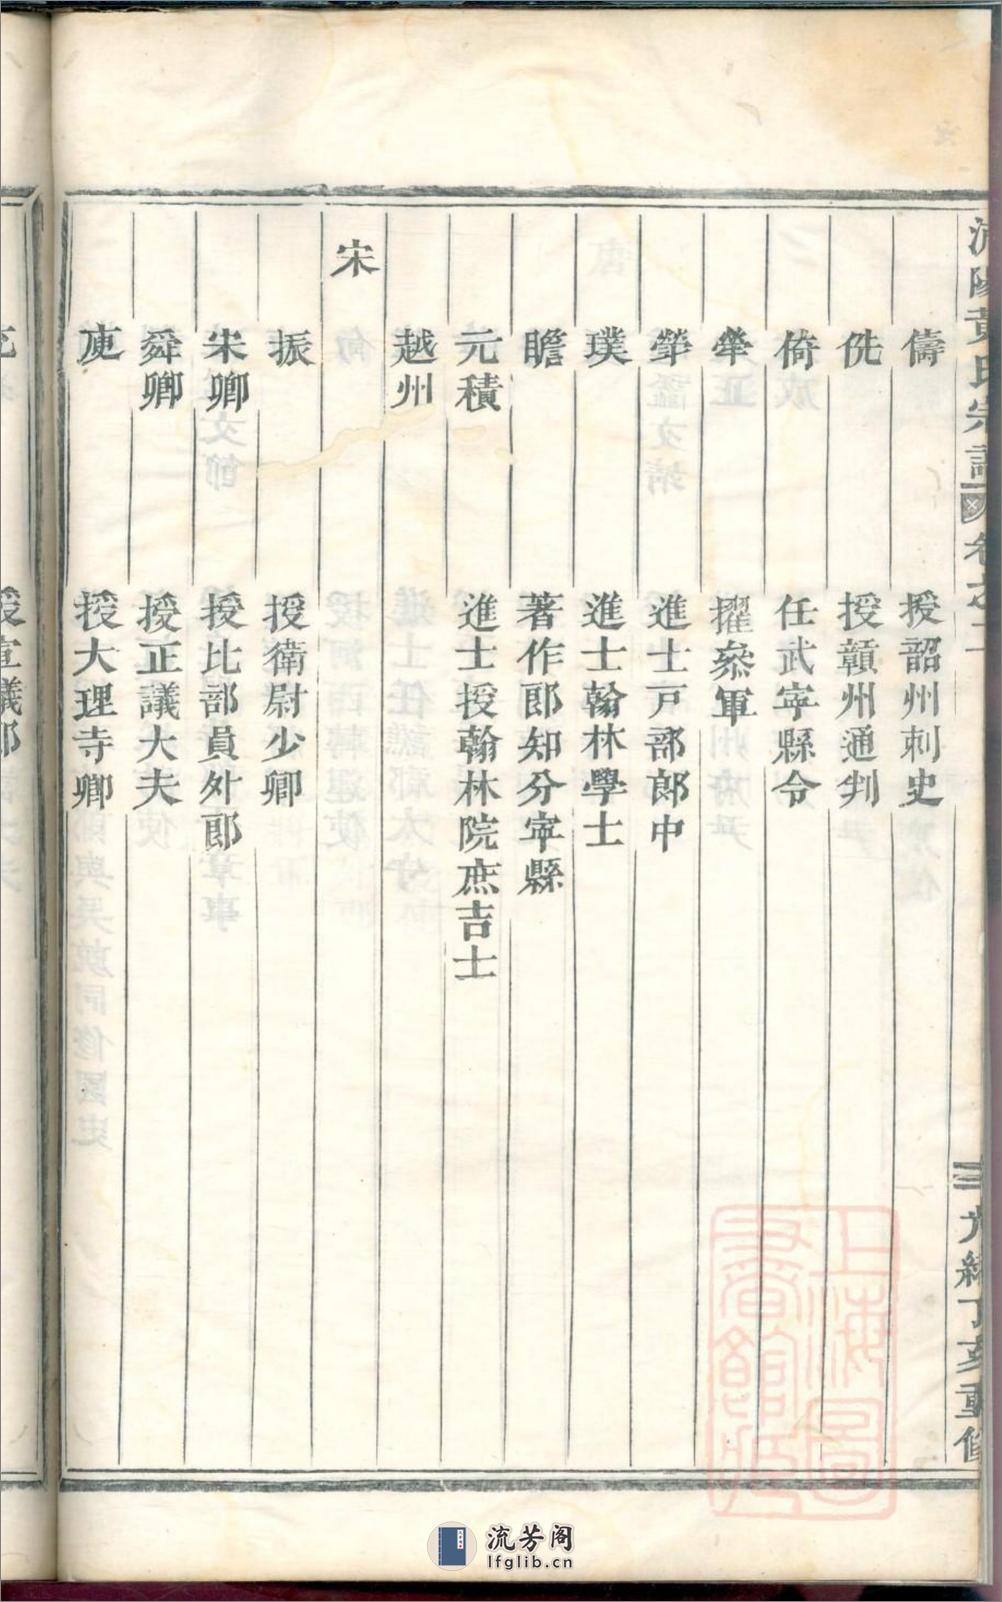 黃氏宗譜
卷之二
二
光緒丁亥重修
儔 授韶州刺史
侁 授贛州通判
倚 任武寕縣令
犖 擢叅軍
犖 進士戸部郎中
璞 進士翰林學士
瞻 著作郎知分寕縣
元積 進士授翰林院庶吉士
越州
宋
振 授衛尉少卿
宋卿 授比部員外郎
舜卿 授正議大夫
庾 授大理寺卿
授宣議郎
上海圖書館藏
流芳阁
lfglib.cn